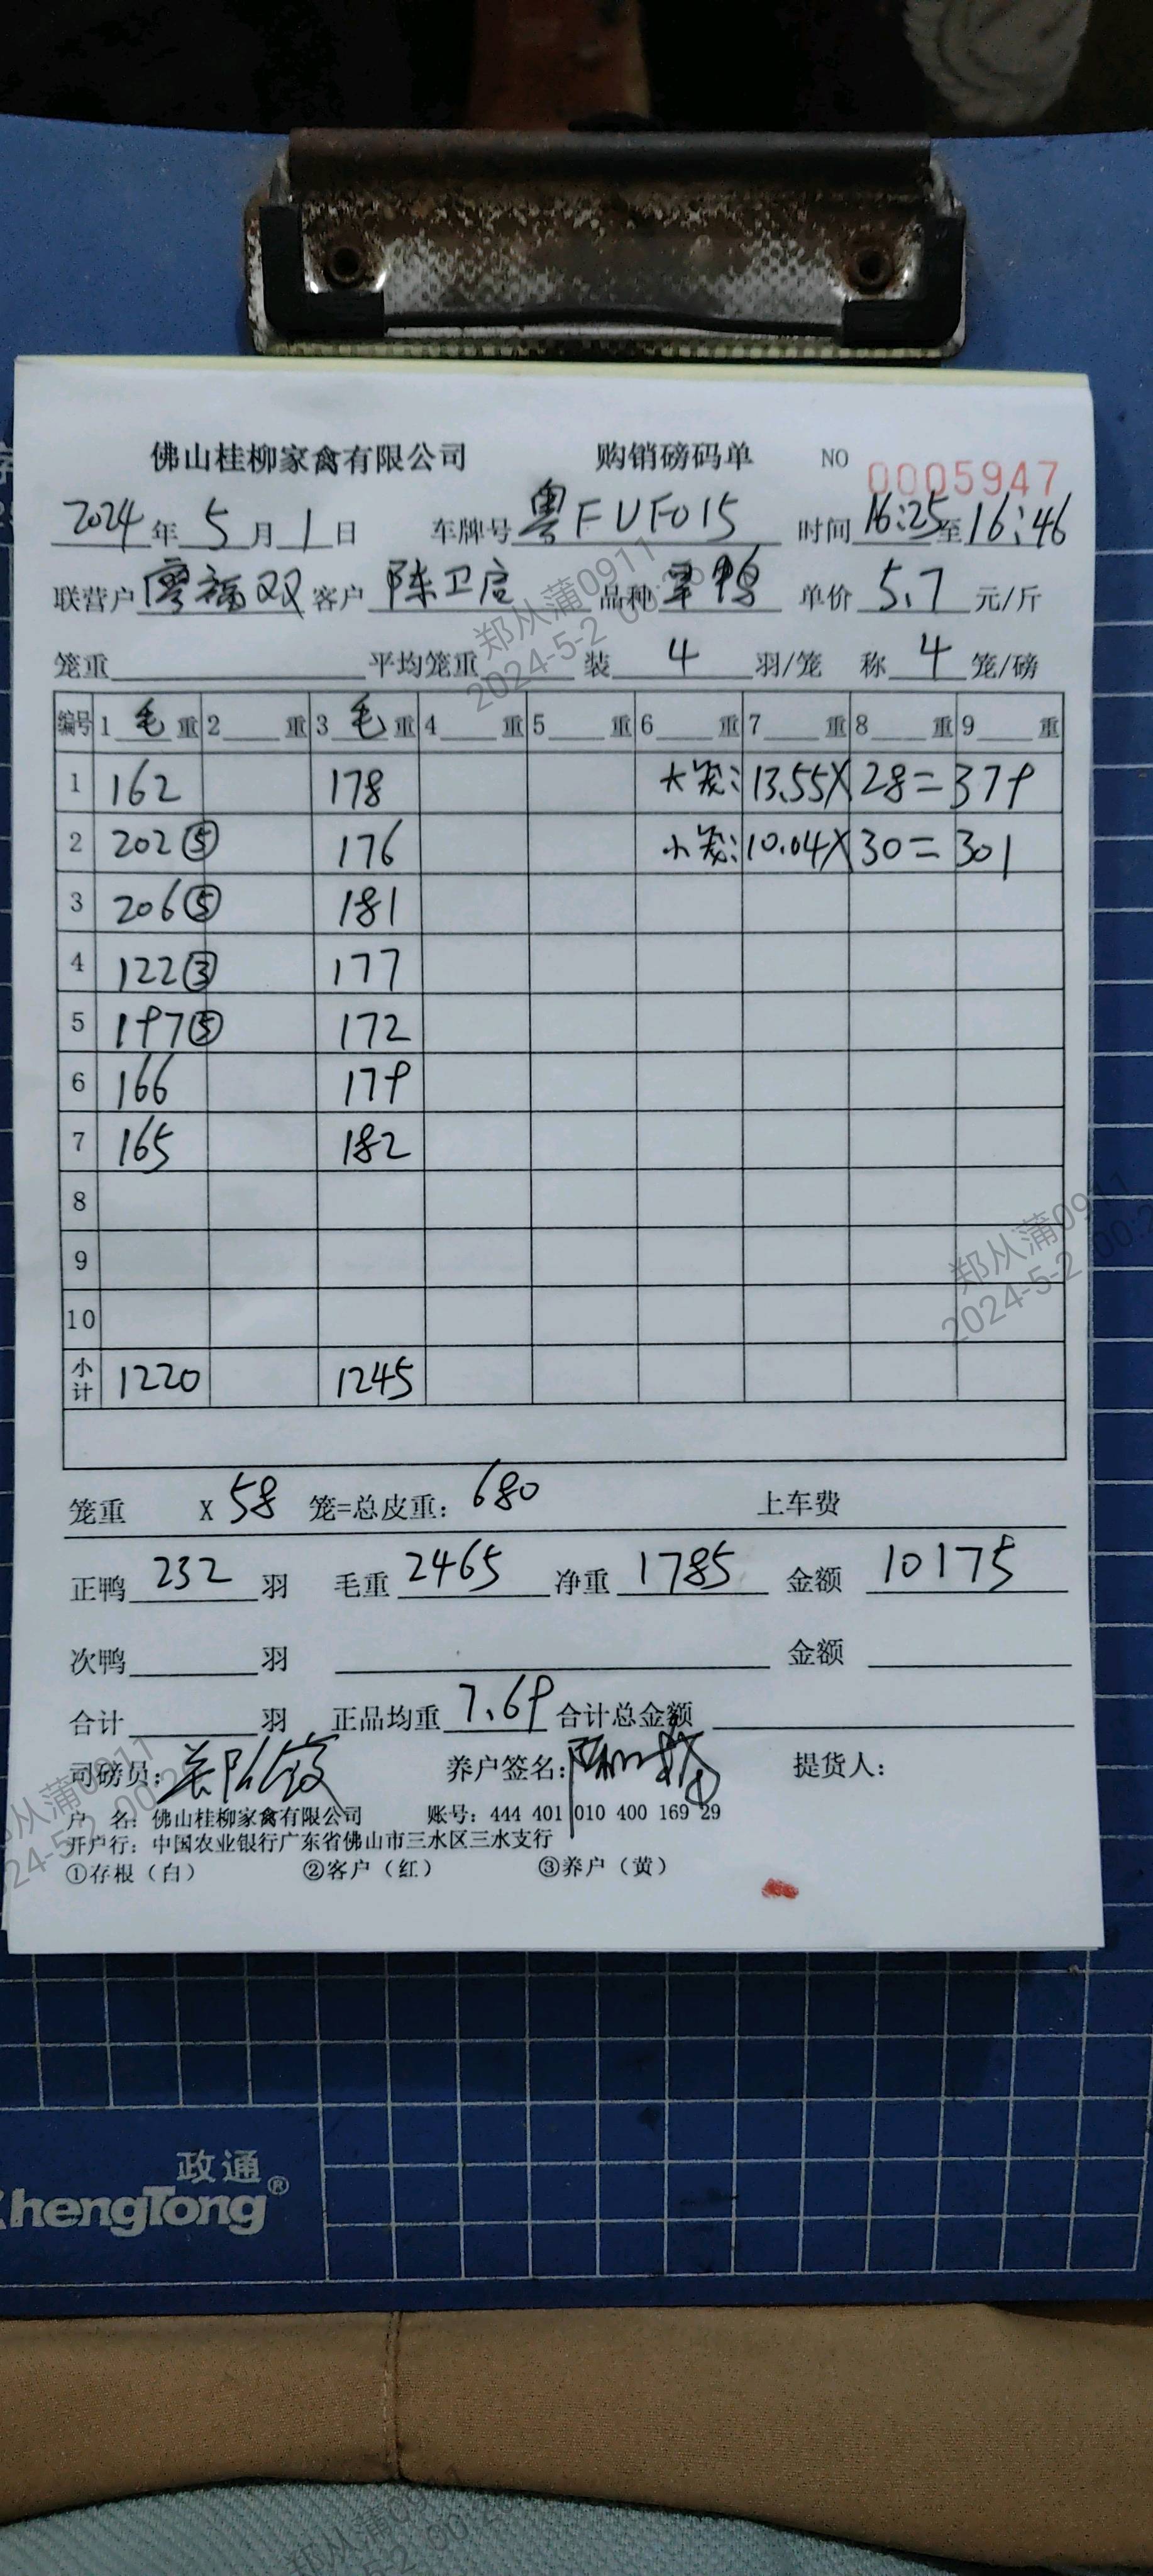 佛山桂柳家禽有限公司 购销磅码单 NO 0005947
2024年5月1日 车牌号 粤FUF015 时间 16:25至16:46
联营户 廖福双 客户 陈卫启 品种 鸭 单价 5.7 元/斤
笼重 平均笼重 装 4 羽/笼 称 4 笼/磅
编号 1 毛 重 2 重 3 毛 重 4 重 5 重 6 重 7 重 8 重 9 重
1 162 178 大笼: 13.55X 28= 379
2 202⑤ 176 小笼: 10.04X 30= 301
3 206⑤ 181
4 122③ 177
5 197⑤ 172
6 166 179
7 165 182
8
9
10
小计 1220 1245
笼重 X 58 笼=总皮重: 680 上车费
正鸭 232 羽 毛重 2465 净重 1785 金额 10175
次鸭 羽 金额
合计 羽 正品均重 7.69 合计总金额
司磅员: 养户签名: 提货人:
户 名: 佛山桂柳家禽有限公司 账号: 444 401 010 400 169 29
开户行: 中国农业银行广东省佛山市三水区三水支行
①存根（白） ②客户（红） ③养户（黄）
政通®
ZhengTong
郑从蒲0911
2024-5-2 00:2
郑从蒲0911
2024-5-2 00:2
郑从蒲0911
郑从蒲0911